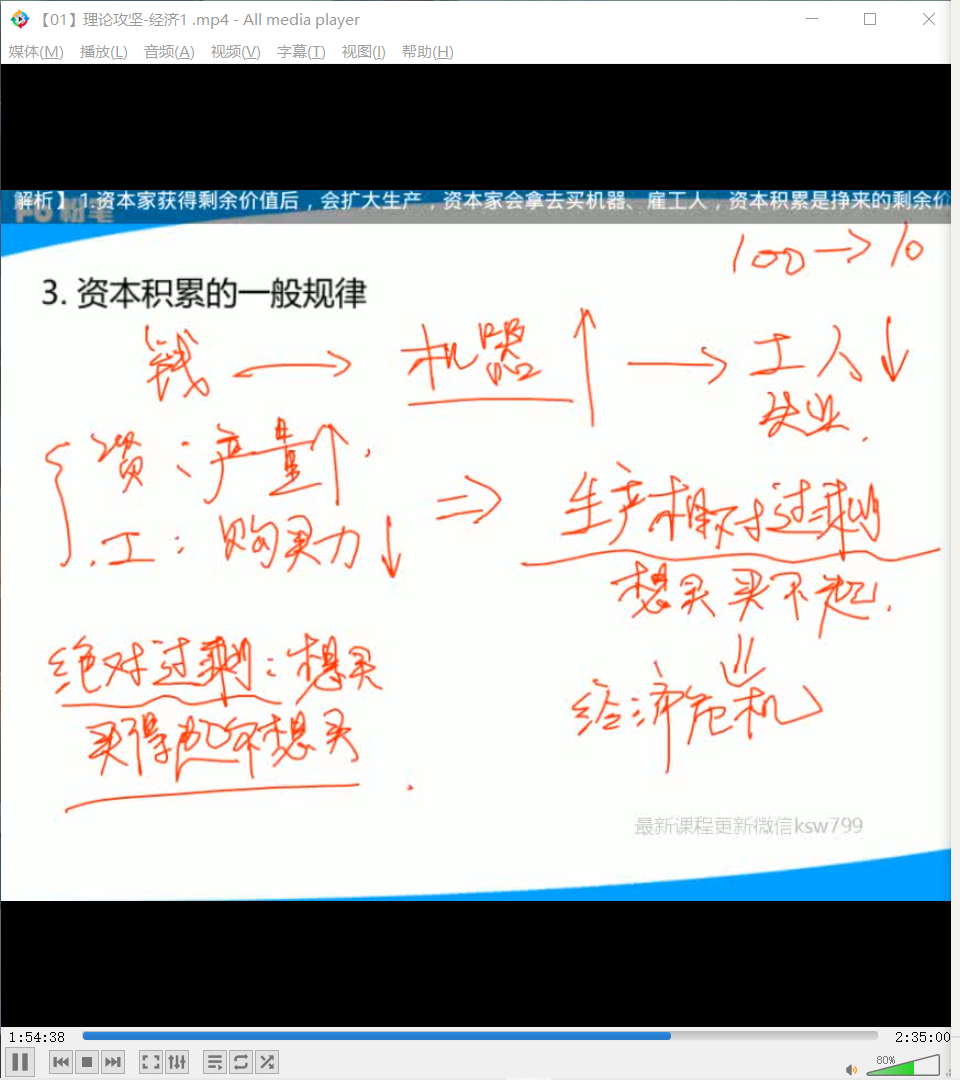 【01】理论攻坚-经济1 .mp4 - All media player
媒体(M) 播放(L) 音频(A) 视频(V) 字幕(T) 视图(I) 帮助(H)
解析】 1.资本家获得剩余价值后，会扩大生产，资本家会拿去买机器、雇工人，资本积累是挣来的剩余价
粉笔
100→10
3. 资本积累的一般规律
钱 → 机器↑ → 工人↓
失业.
资：产量↑.
工：购买力↓ ⇒ 生产相对过剩
想买买不起.
绝对过剩：想买
买得起不想买
经济危机
最新课程更新微信ksw799
1:54:38 2:35:00
80%